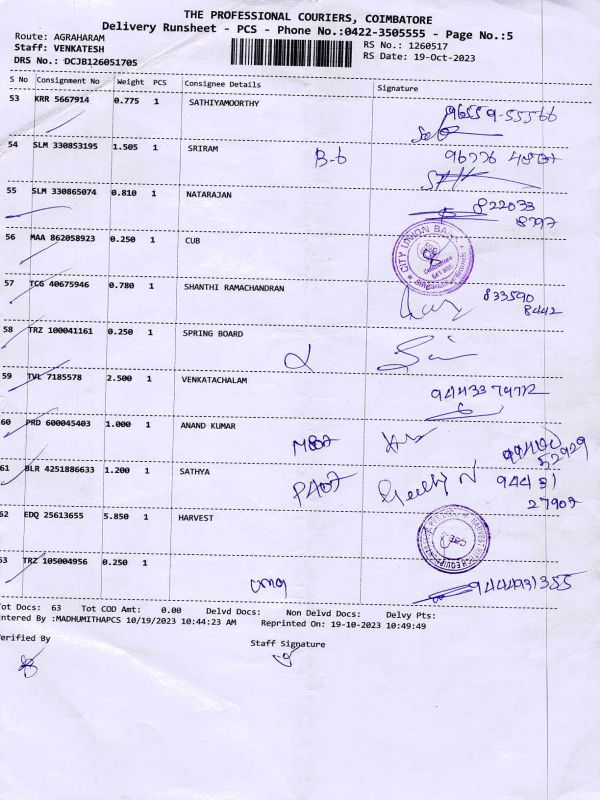 THE PROFESSIONAL COURIERS, COIMBATORE
Delivery Runsheet - PCS - Phone No.:0422-3505555 - Page No.:5
Route: AGRAHARAM
RS No.: 1260517
Staff: VENKATESH
RS Date: 19-Oct-2023
DRS No.: DCJB126051705
S No Consignment No Weight PCS Consignee Details Signature
53 KRR 5667914 0.775 1 SATHIYAMOORTHY
96559-55566
54 SLM 330853195 1.505 1 SRIRAM B-6
55 SLM 330865074 0.810 1 NATARAJAN 822033
8797
56 MAA 862058923 0.250 1 CUB CITY UNION BANK
57 TCG 40675946 0.780 1 SHANTHI RAMACHANDRAN 833590
8442
58 TRZ 100041161 0.250 1 SPRING BOARD
59 TVL 7185578 2.500 1 VENKATACHALAM
60 PRD 600045403 1.000 1 ANAND KUMAR
61 BLR 4251886633 1.200 1 SATHYA 94431
27902
62 EDQ 25613655 5.850 1 HARVEST
63 TRZ 105004956 0.250 1
9444931355
Tot Docs: 63 Tot COD Amt: 0.00 Delvd Docs: Non Delvd Docs: Delvy Pts:
Entered By :MADHUMITHAPCS 10/19/2023 10:44:23 AM Reprinted On: 19-10-2023 10:49:49
Verified By Staff Signature